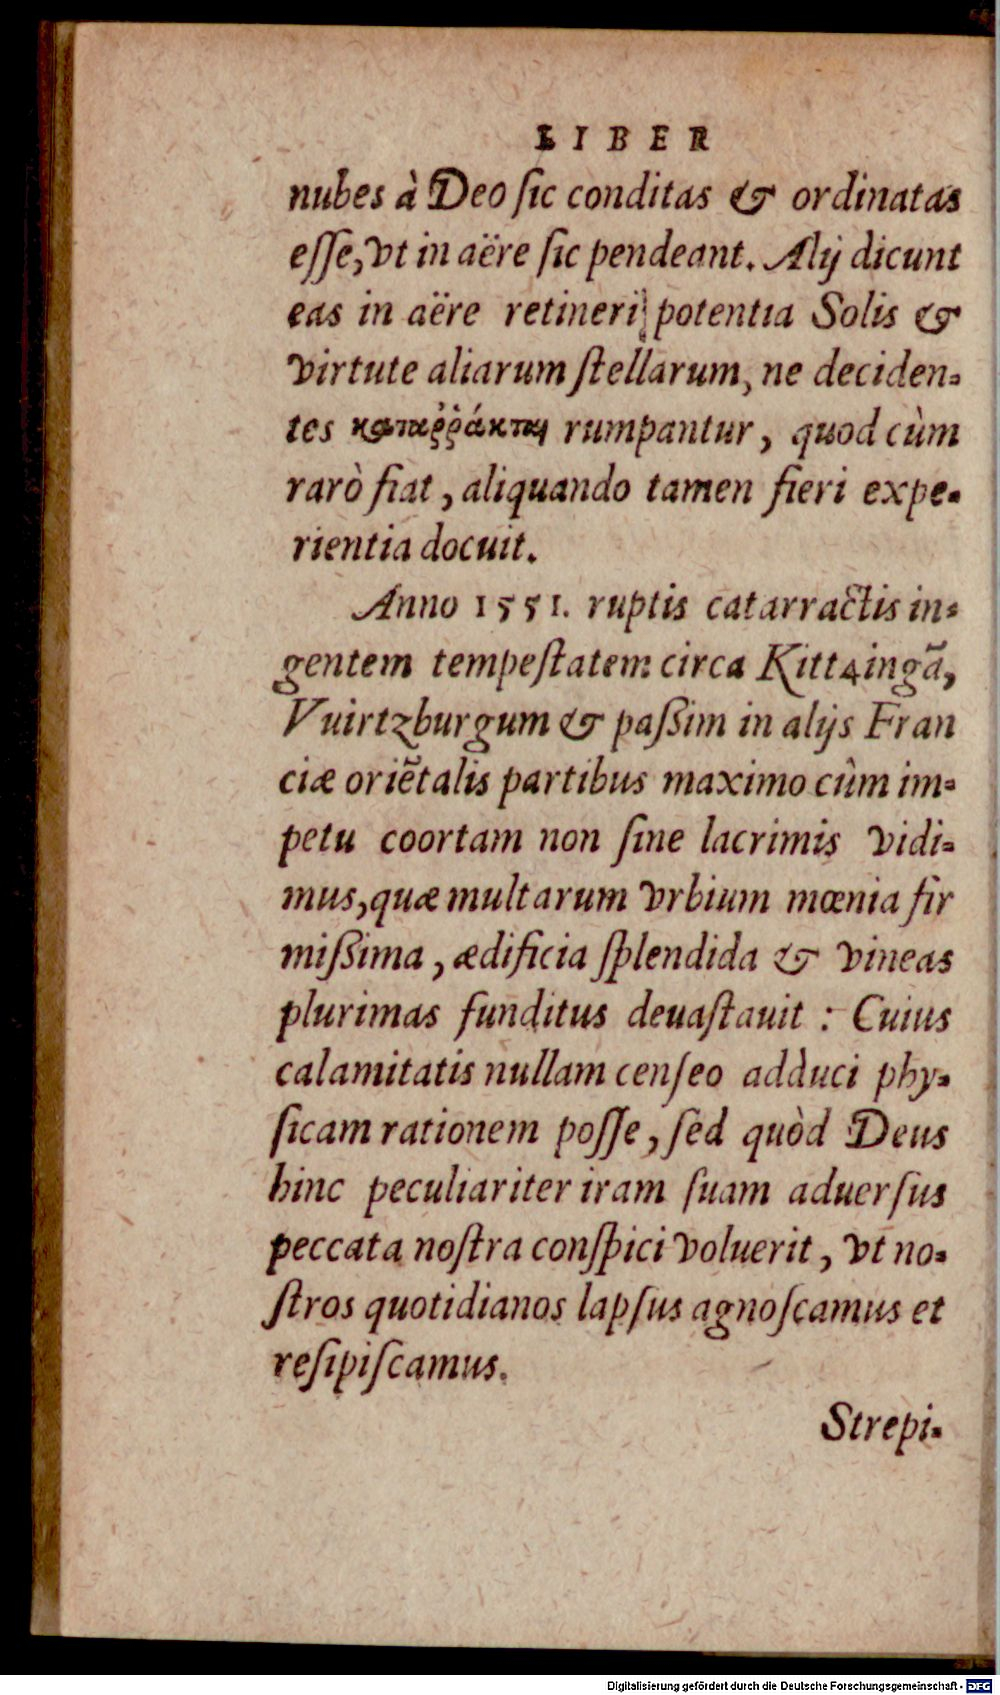 LIBER
nubes à Deo sic conditas & ordinatas
esse, vt in aëre sic pendeant. Alij dicunt
eas in aëre retineri potentia Solis &
virtute aliarum stellarum, ne deciden-
tes καταῤῥάκται rumpantur, quod cùm
rarò fiat, aliquando tamen fieri expe-
rientia docuit.
Anno 1551. ruptis catarractis in-
gentem tempestatem circa Kittzingā,
Vuirtzburgum & paßim in alijs Fran
ciæ oriētalis partibus maximo cùm im-
petu coortam non sine lacrimis vidi-
mus, quæ multarum vrbium mœnia fir
mißima, ædificia splendida & vineas
plurimas funditus deuastauit : Cuius
calamitatis nullam censeo adduci phy-
sicam rationem posse, sed quòd Deus
hinc peculiariter iram suam aduersus
peccata nostra conspici voluerit, vt no-
stros quotidianos lapsus agnoscamus et
resipiscamus.
Strepi-
Digitalisierung gefördert durch die Deutsche Forschungsgemeinschaft - DFG